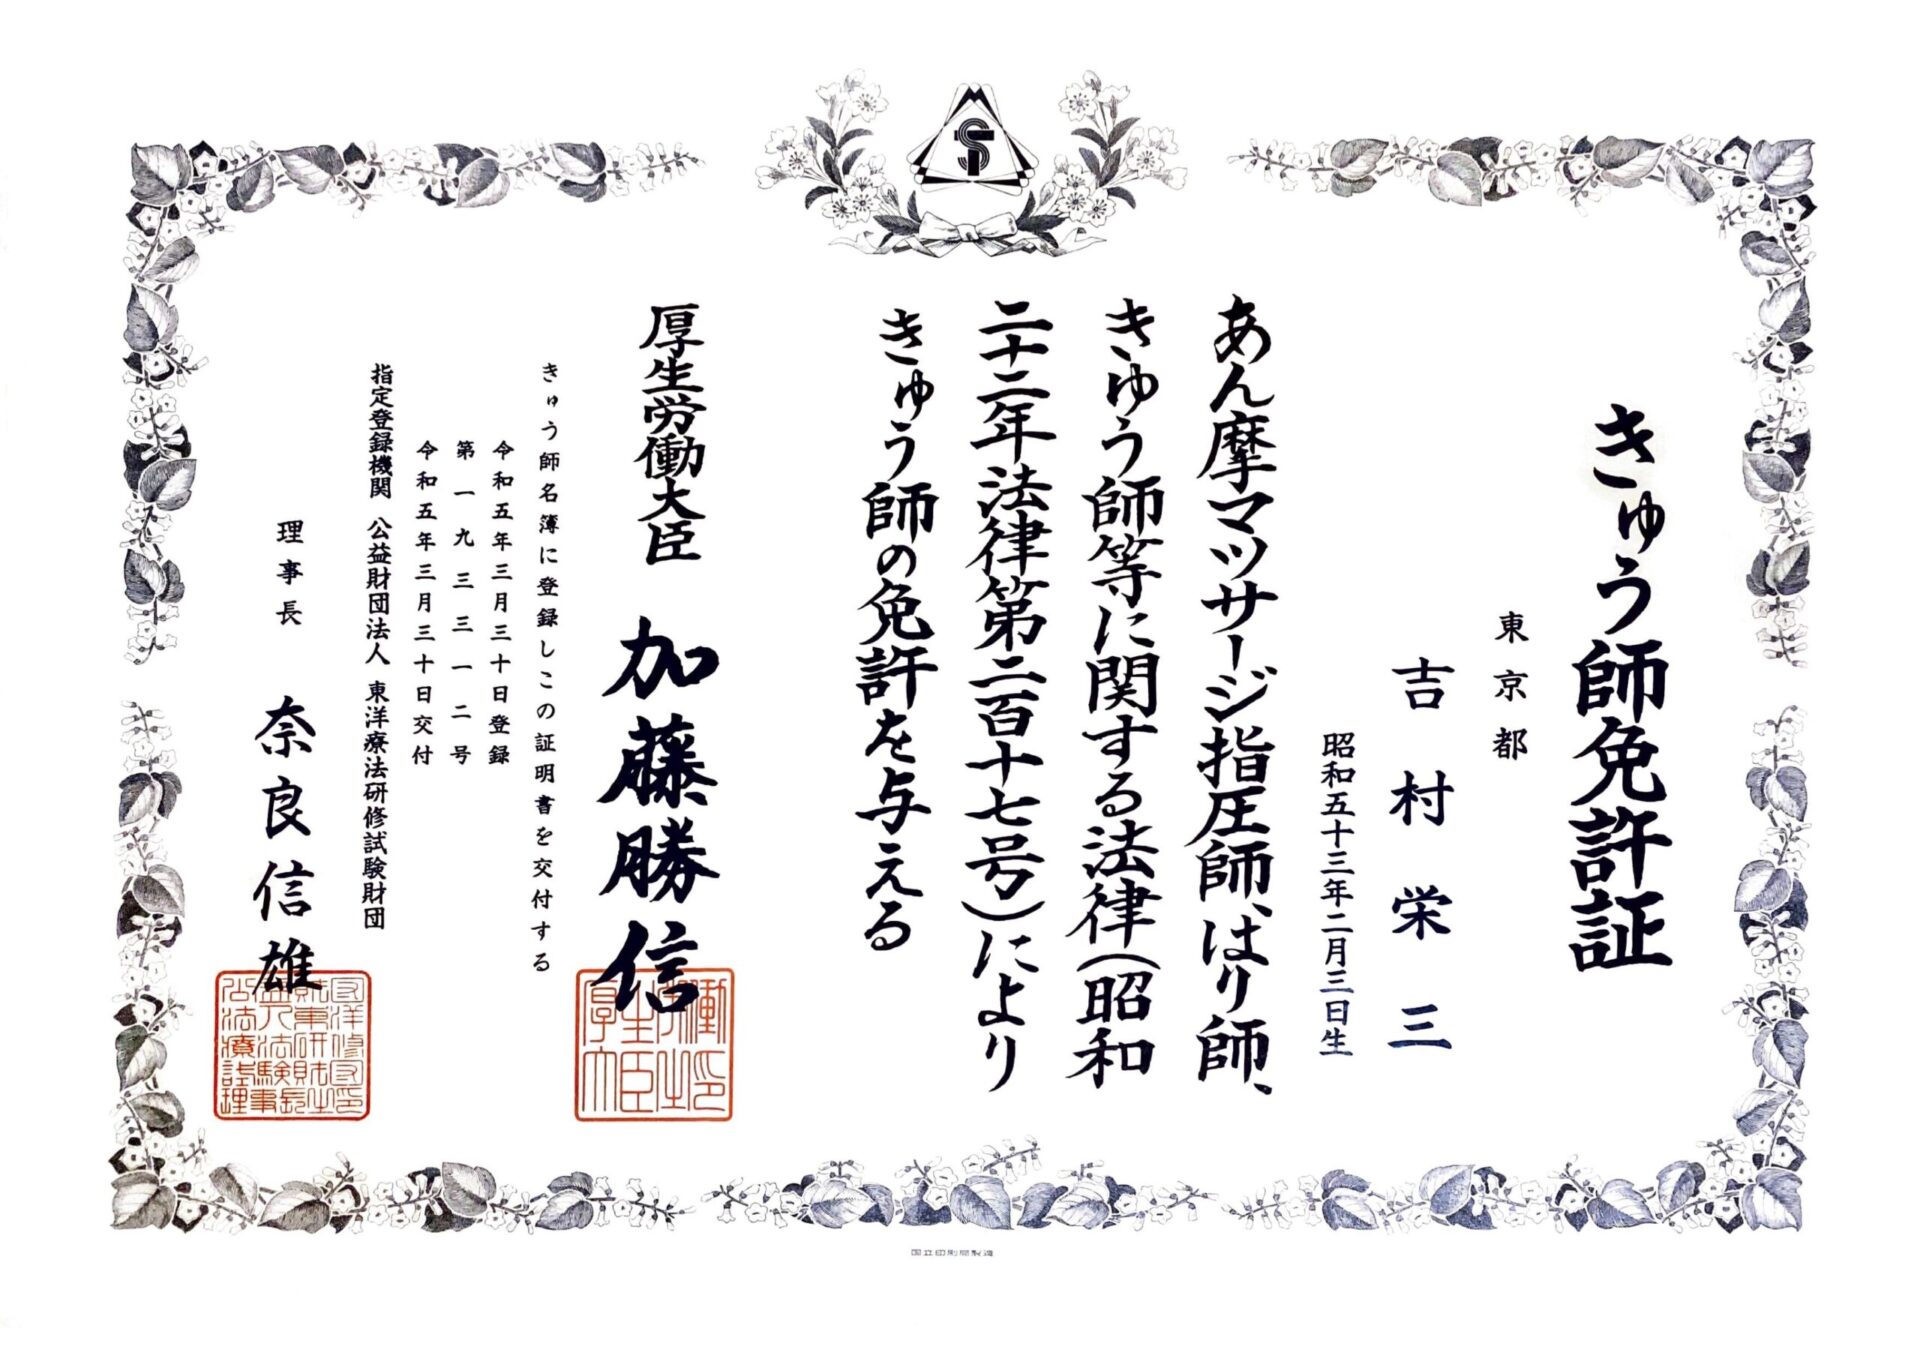 きゅう師免許証
東京都
吉村栄三
昭和五十三年二月三日生
あん摩マッサージ指圧師、はり師、
きゆう師等に関する法律（昭和
二十二年法律第二百十七号）により
きゅう師の免許を与える
厚生労働大臣 加藤勝信
きゅう師名簿に登録しこの証明書を交付する
令和五年三月三十日登録
第一九三三一二号
令和五年三月三十日交付
指定登録機関 公益財団法人 東洋療法研修試験財団
理事長 奈良信雄
国立印刷局製造